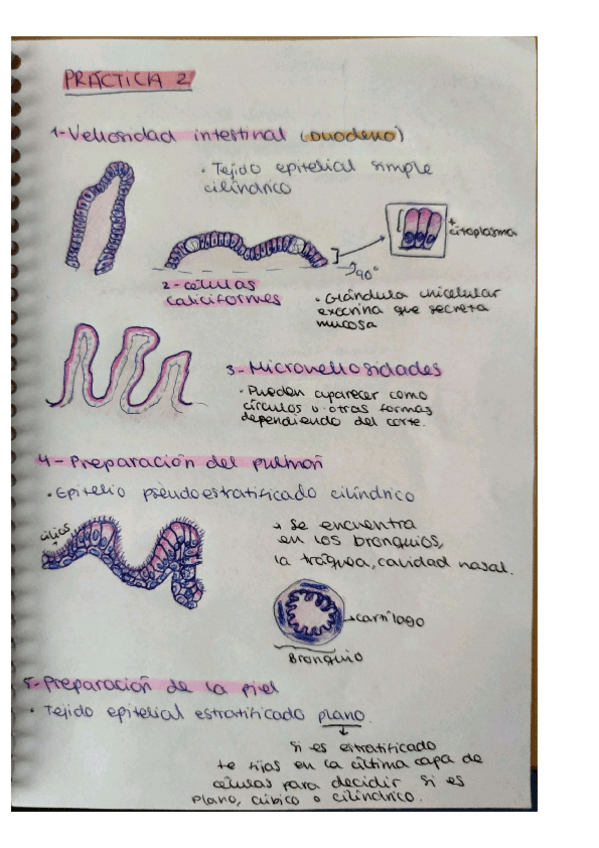 PRÁCTICA 2
1- Vellosidad intestinal (Duodeno)
· Tejido epitelial simple
cilíndrico
+
citoplasma
90°
2- células
caliciformes
· Glándula unicelular
exocrina que secreta
mucosa
3- Microvellosidades
· Pueden aparecer como
círculos u otras formas
dependiendo del corte.
4- Preparación del pulmón
· Epitelio pseudoestratificado cilíndrico
cilios
→ Se encuentra
en los bronquios,
la tráquea, cavidad nasal.
→ cartílago
Bronquio
5- Preparación de la piel
· Tejido epitelial estratificado plano.
Si es estratificado
te fijas en la última capa de
células para decidir si es
plano, cúbico o cilíndrico.